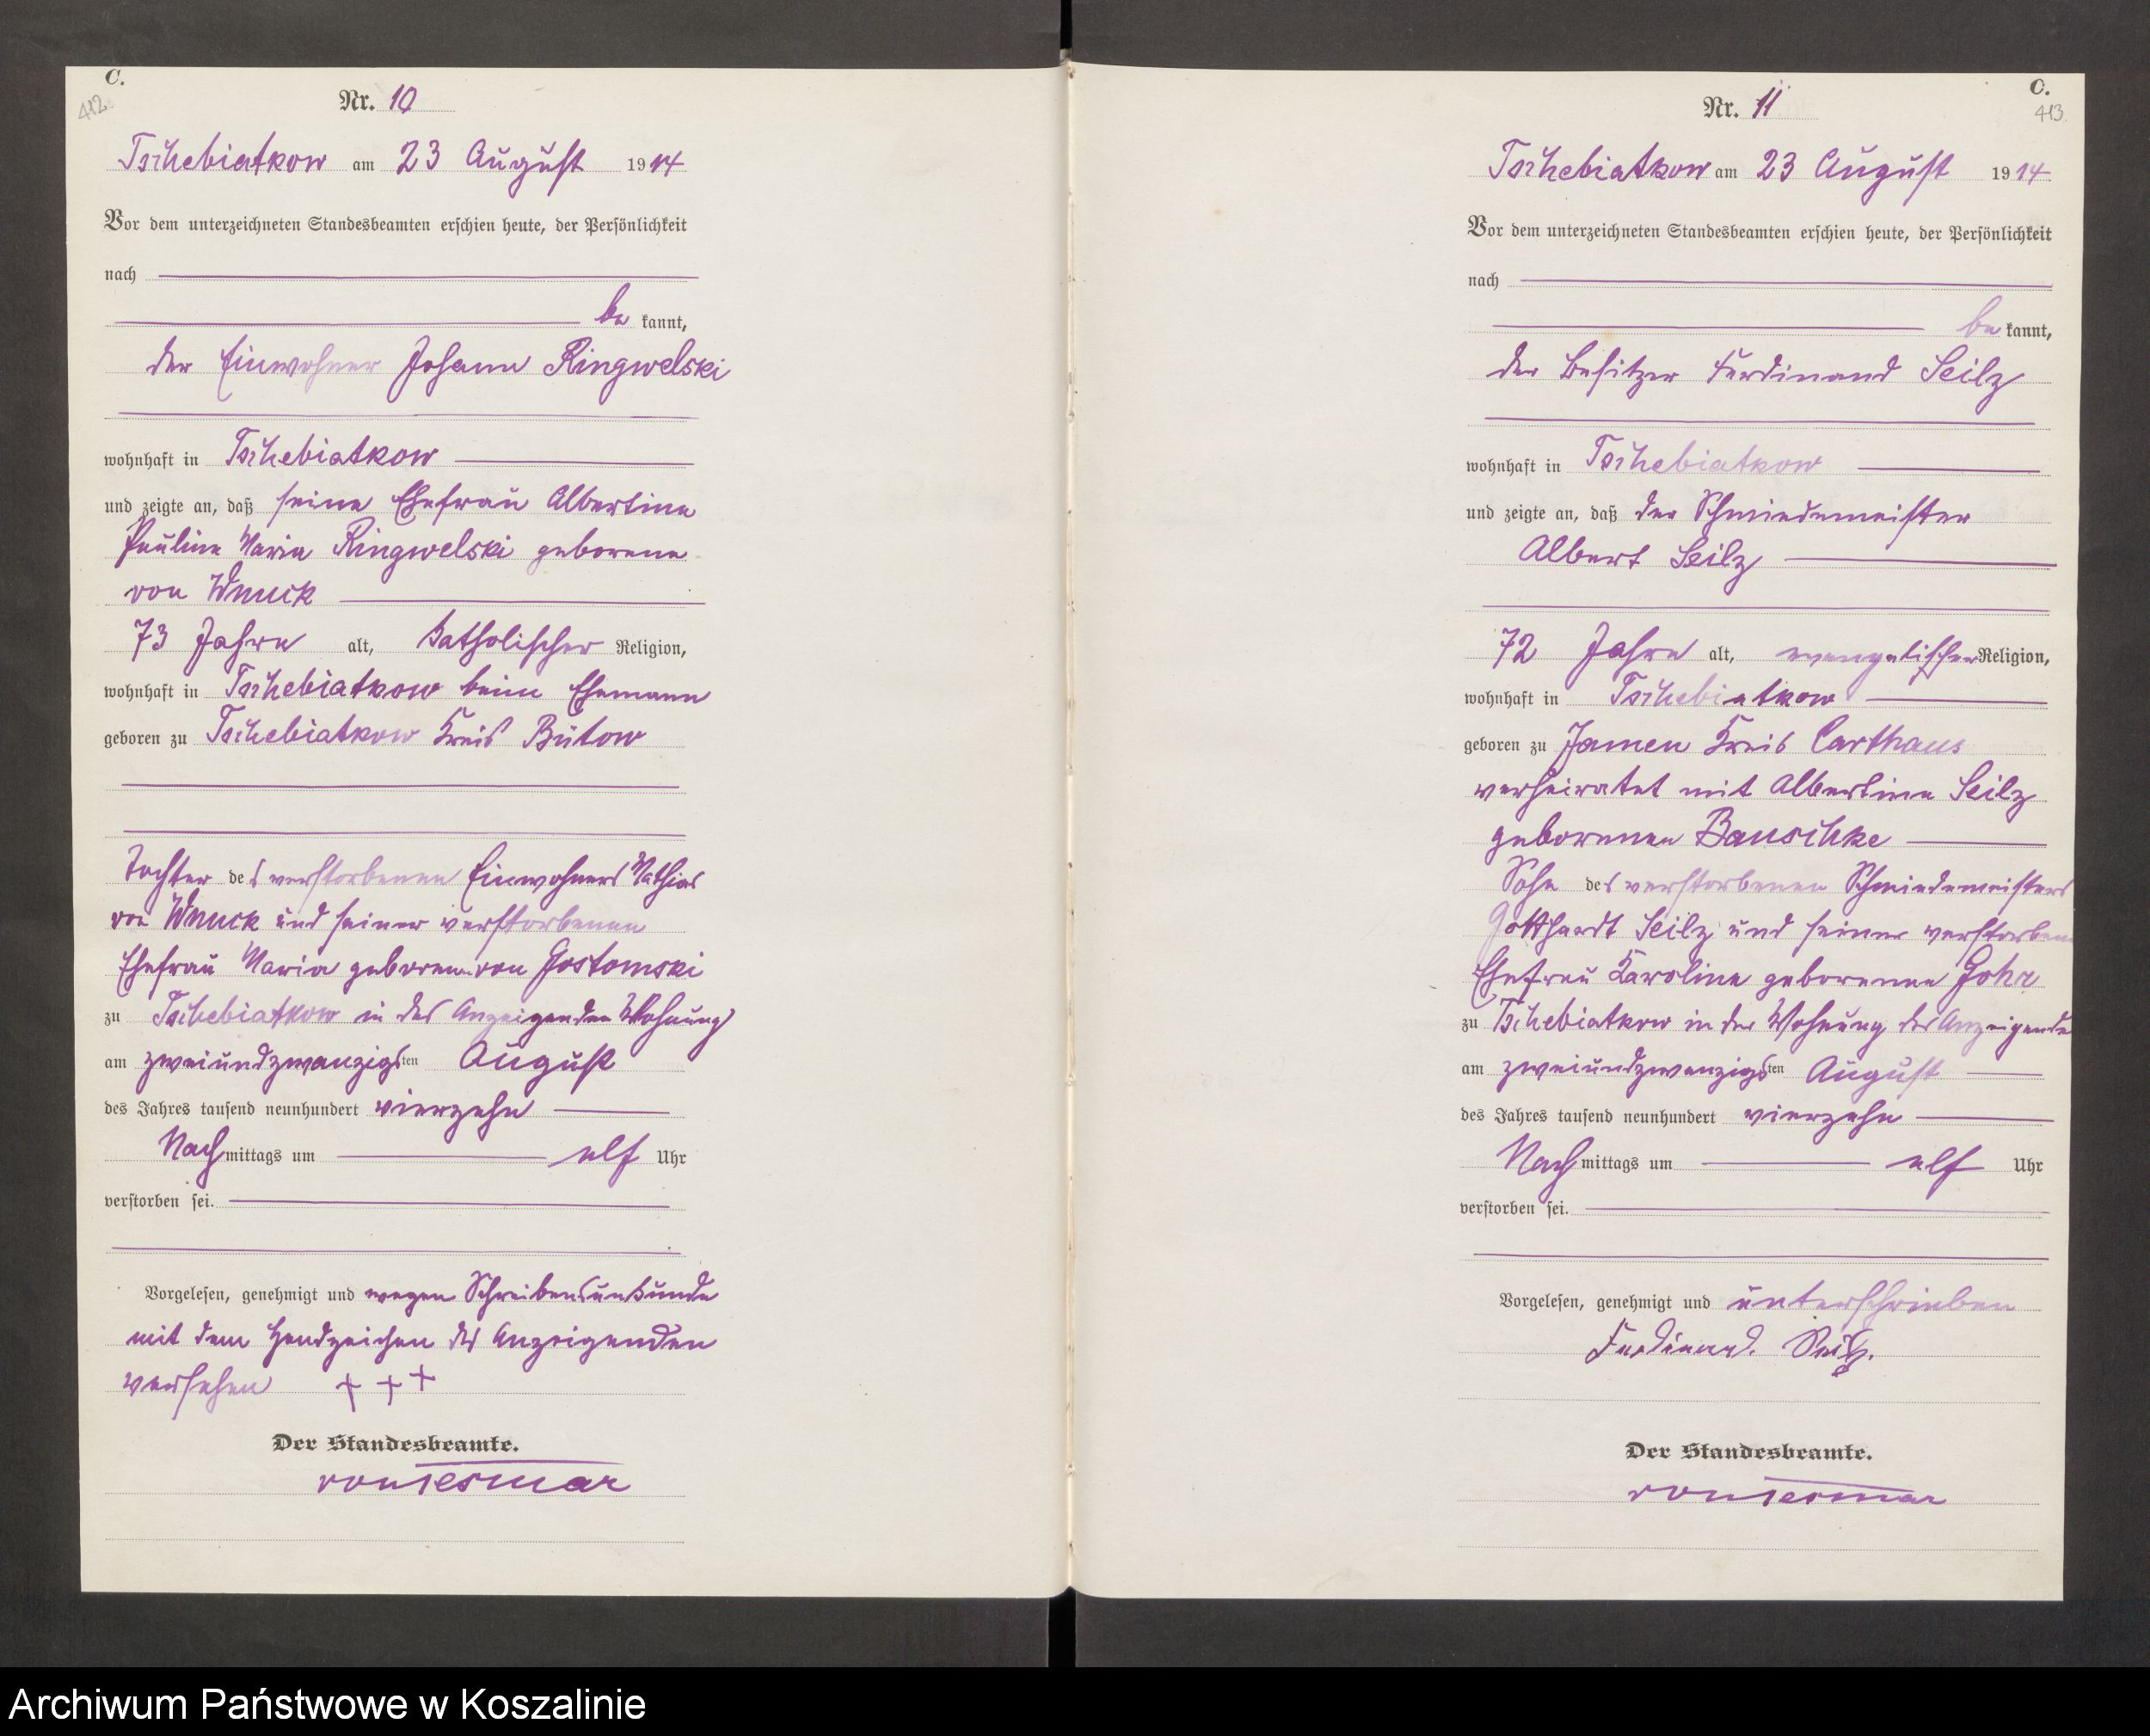 C.
412
Nr. 10
Tschebiatkow am 23 August 1914
Vor dem unterzeichneten Standesbeamten erschien heute, der Persönlichkeit
nach
be kannt,
der Einwohner Johann Ringwelski
wohnhaft in Tschebiatkow
und zeigte an, daß seine Ehefrau Albertine
Pauline Maria Ringwelski geborene
von Wnuck
73 Jahre alt, katholischer Religion,
wohnhaft in Tschebiatkow beim Ehemann
geboren zu Tschebiatkow Kreis Bütow
Tochter des verstorbenen Einwohners Mathias
von Wnuck und seiner verstorbenen
Ehefrau Maria geborenen von Gostomski
zu Tschebiatkow in des Anzeigenden Wohnung
am zweiundzwanzigsten August
des Jahres tausend neunhundert vierzehn
Nachmittags um elf Uhr
verstorben sei.
Vorgelesen, genehmigt und wegen Schreibensunkunde
mit dem Handzeichen des Anzeigenden
versehen + + +
Der Standesbeamte.
von Tesmar
C.
413
Nr. 11
Tschebiatkow am 23 August 1914
Vor dem unterzeichneten Standesbeamten erschien heute, der Persönlichkeit
nach
be kannt,
der Besitzer Ferdinand Seilz
wohnhaft in Tschebiatkow
und zeigte an, daß der Schmiedemeister
Albert Seilz
72 Jahre alt, evangelischer Religion,
wohnhaft in Tschebiatkow
geboren zu Jamen Kreis Carthaus
verheiratet mit Albertine Seilz
geborenen Bauschke
Sohn des verstorbenen Schmiedemeisters
Gotthardt Seilz und seiner verstorbenen
Ehefrau Karoline geborenen Gohr
zu Tschebiatkow in der Wohnung des Anzeigenden
am zweiundzwanzigsten August
des Jahres tausend neunhundert vierzehn
Nachmittags um elf Uhr
verstorben sei.
Vorgelesen, genehmigt und unterschrieben
Ferdinand. Seilz.
Der Standesbeamte.
von Tesmar
Archiwum Państwowe w Koszalinie